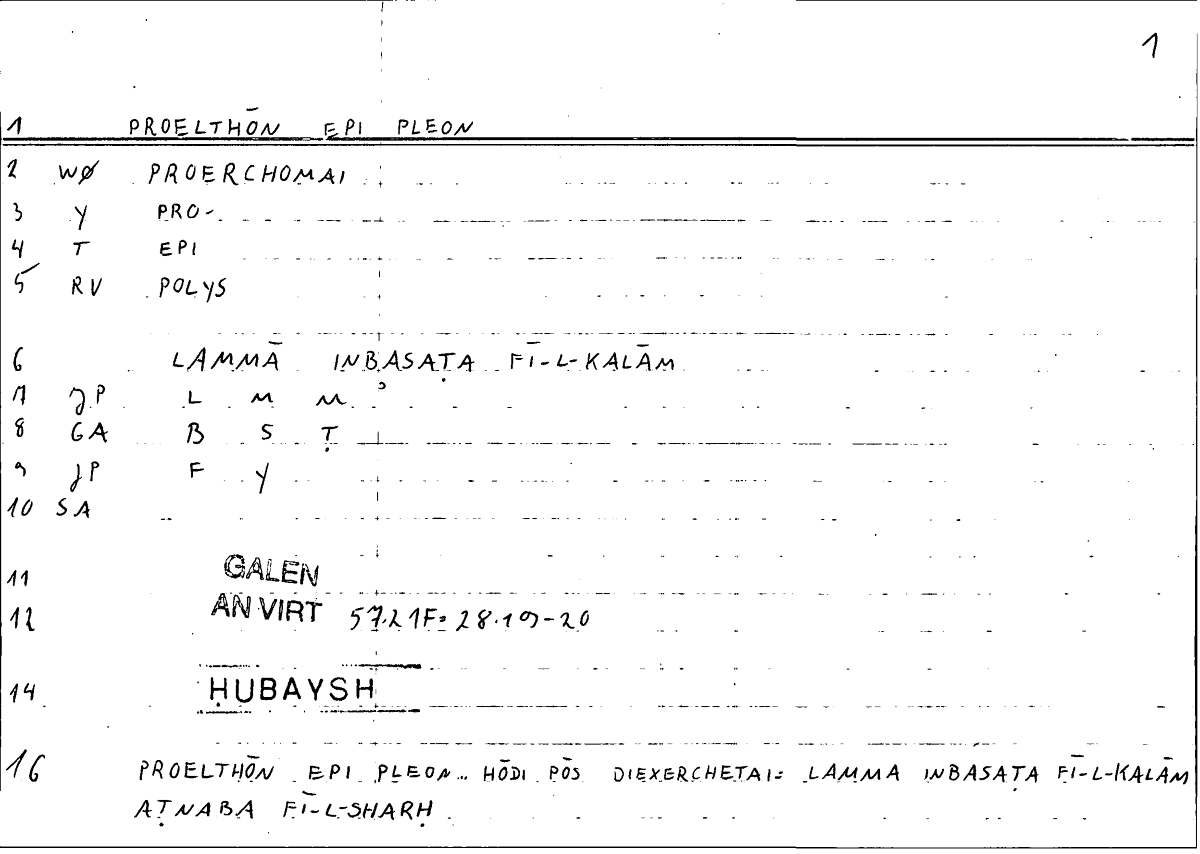 1
1 PROELTHŌN EPI PLEON
2 WØ PROERCHOMAI
3 Y PRO-
4 T EPI
5 RV POLYS
6 LAMMĀ INBASAṬA FĪ-L-KALĀM
7 JP L M M ʾ
8 GA B S Ṭ
9 JP F Y
10 SA
11 GALEN
12 AN VIRT 57.21F= 28.19-20
14 ḤUBAYSH
16 PROELTHŌN EPI PLEON... HŌDI PŌS DIEXERCHETAI= LAMMA INBASAṬA FĪ-L-KALĀM
AṬNABA FĪ-L-SHARḤ